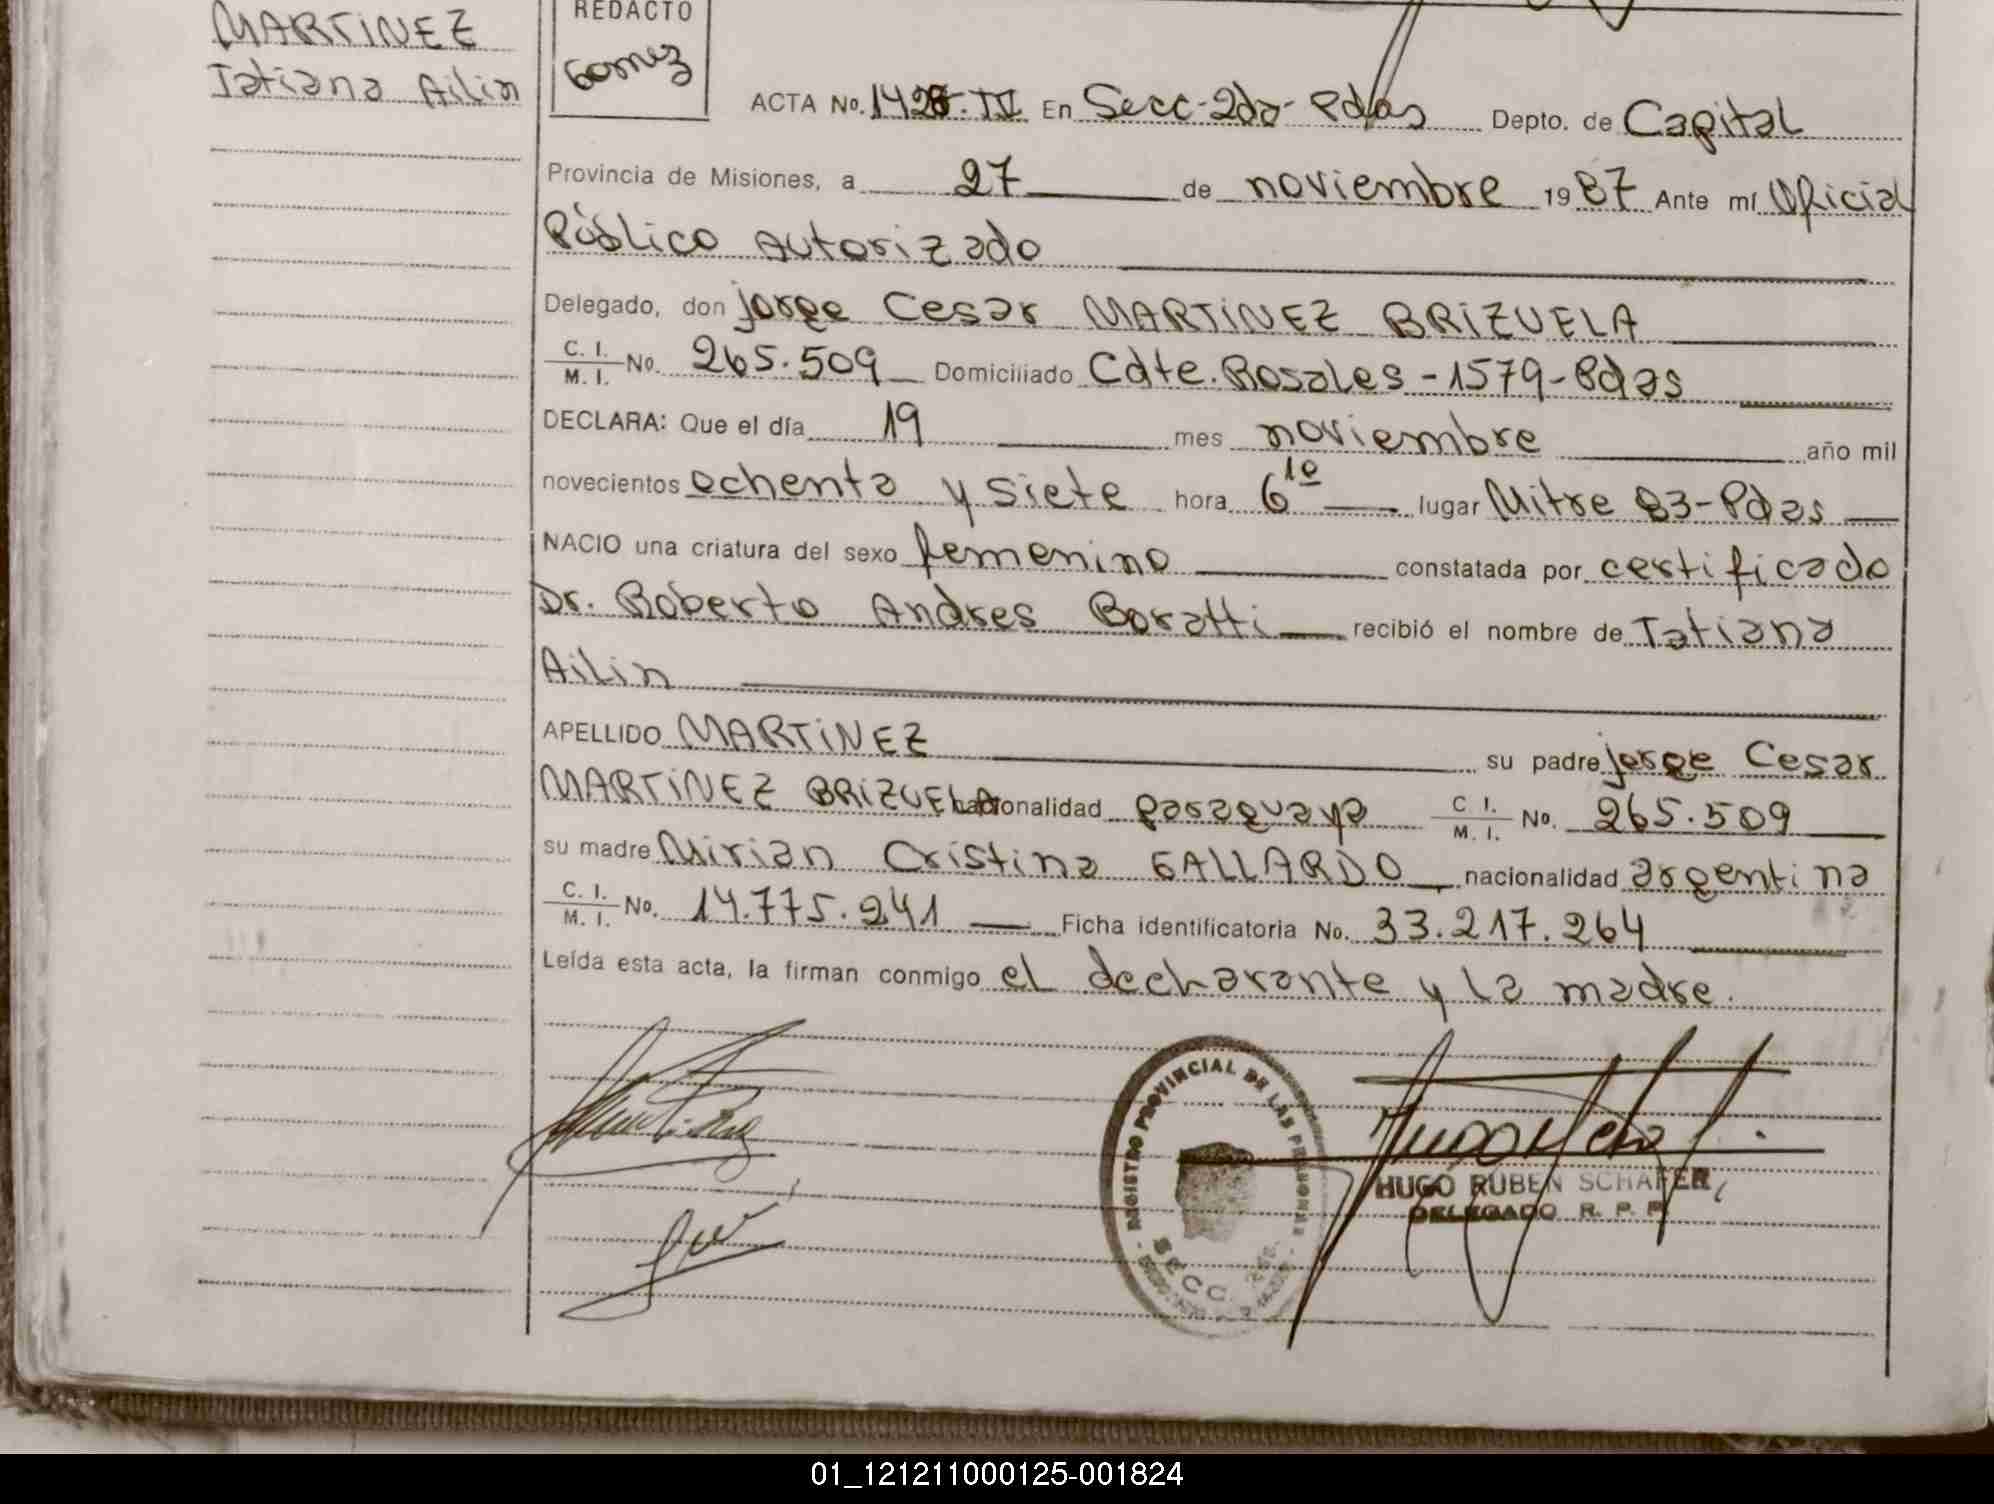 MARTINEZ
Tatiana Ailin
REDACTO
Gomez
ACTA No. 1426-IV En Secc-2da-Pdas Depto. de Capital
Provincia de Misiones, a 27 de noviembre 1987 Ante mí Oficial
Público Autorizado
Delegado, don Jorge Cesar MARTINEZ BRIZUELA
C. I. / M. I. No. 265.509 Domiciliado Cdte. Rosales - 1579 - Pdas
DECLARA: Que el día 19 mes noviembre año mil
novecientos ochenta y siete hora 6 10 lugar Mitre 83-Pdas
NACIO una criatura del sexo femenino constatada por certificado
Dr. Roberto Andres Boratti recibió el nombre de Tatiana
Ailin
APELLIDO MARTINEZ su padre Jorge Cesar
MARTINEZ BRIZUELA nacionalidad paraguaya C. I. / M. I. No. 265.509
su madre Mirian Cristina GALLARDO nacionalidad argentina
C. I. / M. I. No. 14.775.241 Ficha identificatoria No. 33.217.264
Leída esta acta, la firman conmigo el decharante y la madre.
REGISTRO PROVINCIAL DE LAS PERSONAS
SECC.
HUGO RUBEN SCHAFER
DELEGADO R. P. P.
01_121211000125-001824